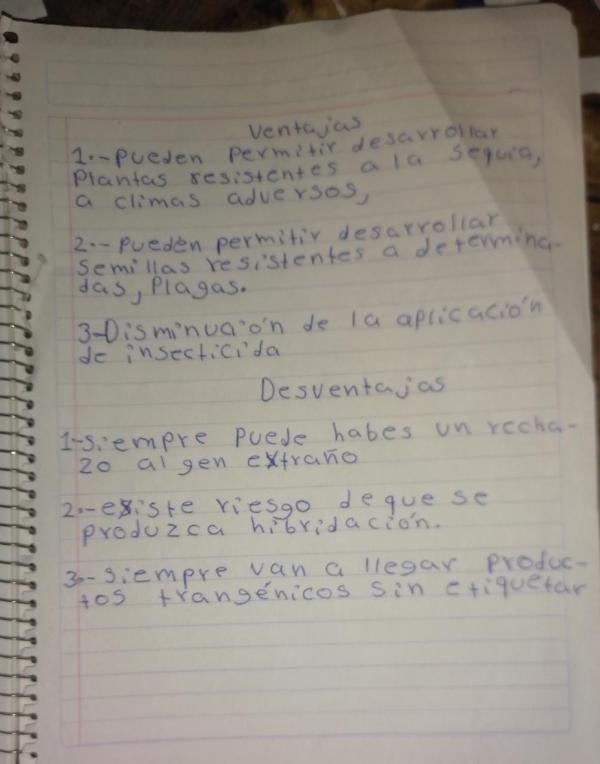 Ventajas
1.-Pueden permitir desarrollar
Plantas resistentes a la sequia,
a climas adversos,
2.-Pueden permitir desarrollar
Semillas resistentes a determina-
das, Plagas.
3-Disminución de la aplicación
de insecticida
Desventajas
1-siempre puede habes un recha-
zo al gen extraño
2.-existe riesgo de que se
produzca hibridación.
3.-siempre van a llegar produc-
tos trangénicos sin etiquetar